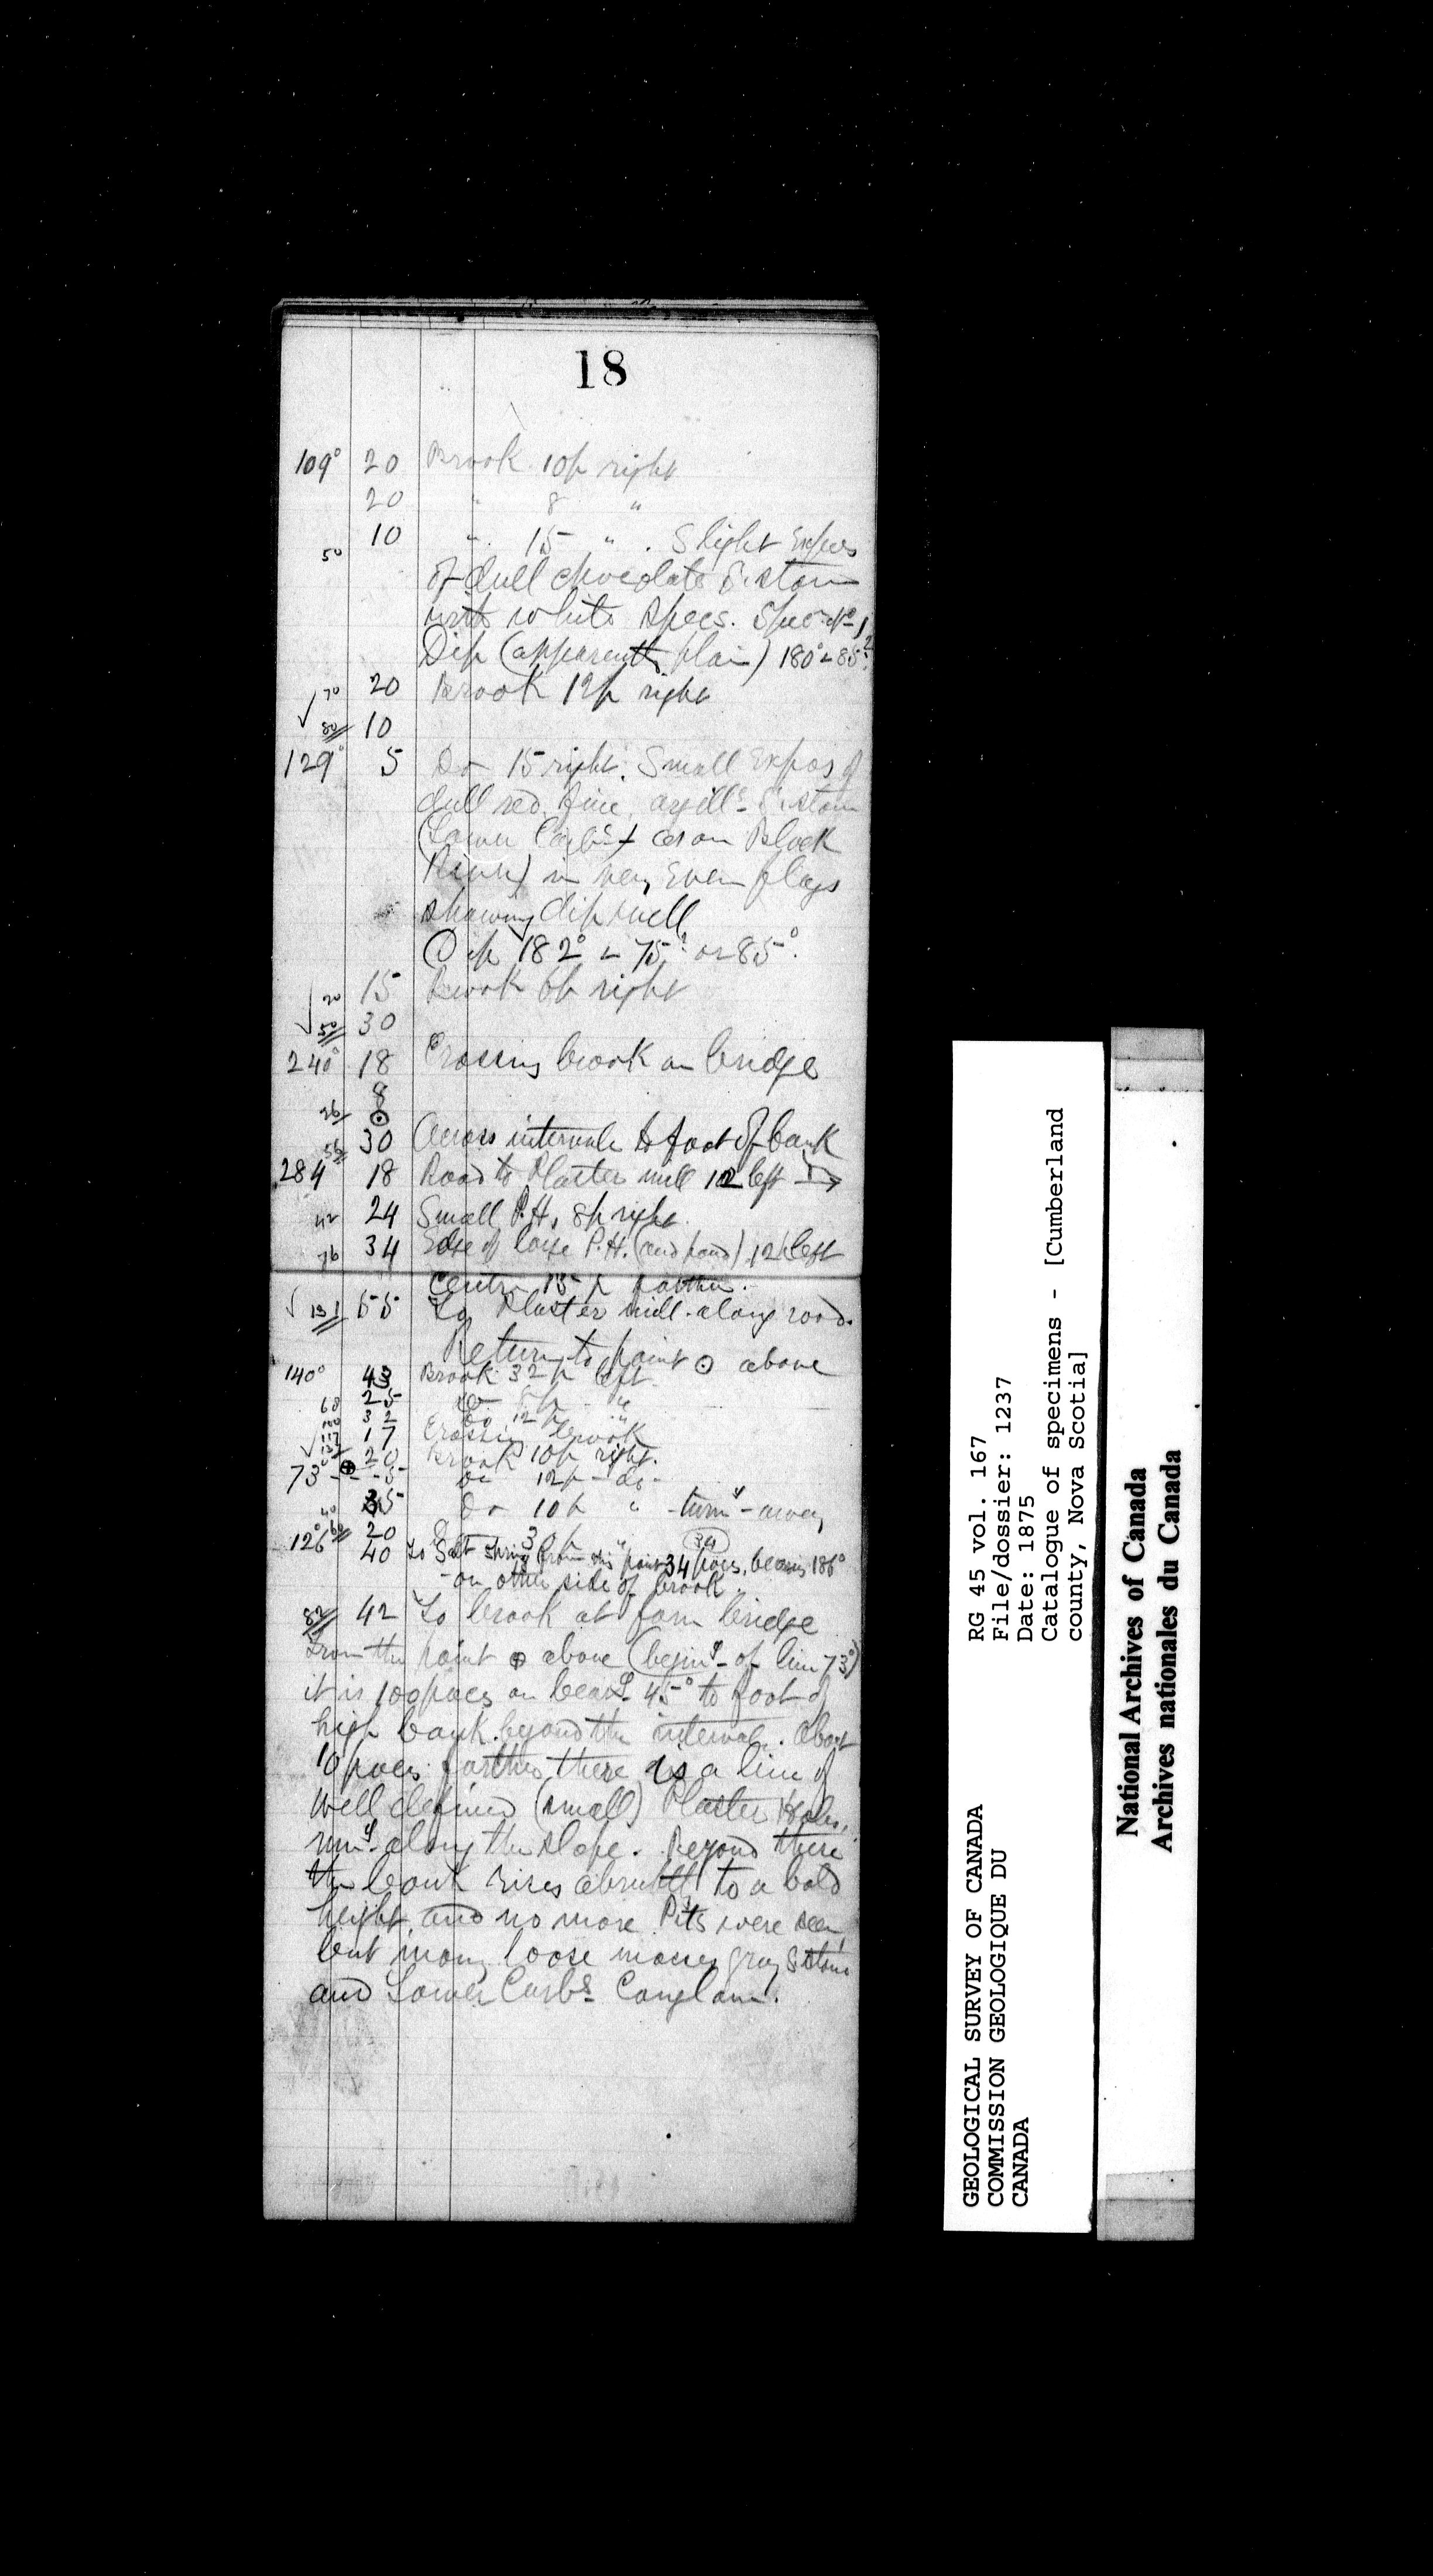 18
109° 20 Brook 10p right
20 " 8 "
10 " 15 " . Slight Expos
50
of dull chocolate S. stone
with white specs. Spec. No 1
Dip (apparently plain) 180° ∠ 85°?
70 20 Brook 12p right
80 10
129° 5 Do 15 right. Small Expos of
dull red, fine, argills. S. stone
(Lower Carbs. as on Black
River) in very Even flags
showing dip well
Dip 182° ∠ 75°? or 85°.
20 15 Brook 6p right
50 30
240° 18 Crossing brook on bridge
26 8
⊙
56 30 Across intervale to foot of bank
284 18 Road to Plaster mill 12 left →
42 24 Small P.H. 8p right.
76 34 Edge of large P.H. (and pond) 12p left
Centre 15 p farther.
131 55 To Plaster mill along road.
Return to point ⊙ above
140° 43 Brook 32p left
68 25 Do 8p "
100 32 Do 12p "
117 17 Crossing brook
137 20 Brook 10p right.
73° ⊕ - - 5 Do 12p - do -
40 35 Do 10p " turng away
60 20 8 30p "
126° 40 To Salt Spring from this point 34 paces, bearing 186° (34)
- on other side of brook.
82 42 To brook at farm bridge
From the point ⊕ above (beging of line 73°)
it is 100 paces on bearg 45° to foot of
high bank beyond the intervale. About
10 paces farther there is a line of
well defined (small) Plaster Holes,
rung along the slope. Beyond these
the bank rises abruptly to a bold
height and no more Pits were seen,
but many loose masses gray S. stone
and Lower Carbs. Conglom.
GEOLOGICAL SURVEY OF CANADA
COMMISSION GEOLOGIQUE DU
CANADA
RG 45 vol. 167
File/dossier: 1237
Date: 1875
Catalogue of specimens - [Cumberland
county, Nova Scotia]
National Archives of Canada
Archives nationales du Canada